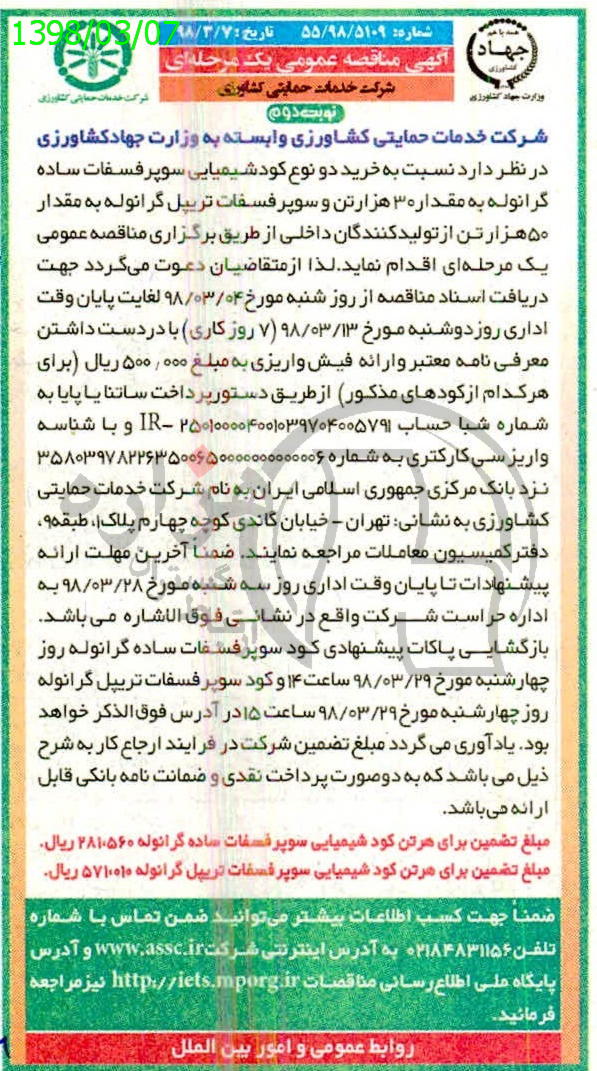 1398/03/07
شماره: ۵۵/۹۸/۵۱۰۹ تاریخ: ۹۸/۳/۷
آگهی مناقصه عمومی یک مرحله‌ای
شرکت خدمات حمایتی کشاورزی
همه با هم
جهاد
کشاورزی
وزارت جهاد کشاورزی
شرکت خدمات حمایتی کشاورزی
نوبت دوم
شرکت خدمات حمایتی کشاورزی وابسته به وزارت جهادکشاورزی
در نظر دارد نسبت به خرید دو نوع کود شیمیایی سوپر فسفات ساده
گرانوله به مقدار ۳۰ هزار تن و سوپر فسفات تریپل گرانوله به مقدار
۵۰هزار تن از تولیدکنندگان داخلی از طریق برگزاری مناقصه عمومی
یک مرحله‌ای اقدام نماید.لذا ازمتقاضیان دعوت می‌گردد جهت
دریافت اسناد مناقصه از روز شنبه مورخ ۹۸/۰۳/۰۴ لغایت پایان وقت
اداری روز دوشنبه مورخ ۹۸/۰۳/۱۳ (۷ روز کاری) با دردست داشتن
معرفی نامه معتبر وارائه فیش واریزی به مبلغ ۵۰۰٫۰۰۰ ریال (برای
هرکدام ازکودهای مذکور) ازطریق دستورپرداخت ساتنا یا پایا به
شماره شبا حساب ۲۵۰۱۰۰۰۰۴۰۰۱۰۳۹۷۰۴۰۰۵۷۹۱ -IR و با شناسه
واریز سی کارکتری به شماره
نزد بانک مرکزی جمهوری اسلامی ایران به نام شرکت خدمات حمایتی
کشاورزی به نشانی: تهران - خیابان گاندی کوچه چهارم پلاک۱، طبقه۹،
دفتر کمیسیون معاملات مراجعه نمایند. ضمناً آخرین مهلت ارائه
پیشنهادات تا پایان وقت اداری روز سه شنبه مورخ ۹۸/۰۳/۲۸ به
اداره حراست شرکت واقع در نشانی فوق الاشاره می باشد.
بازگشایی پاکات پیشنهادی کود سوپرفسفات ساده گرانوله روز
چهارشنبه مورخ ۹۸/۰۳/۲۹ ساعت ۱۴و کود سوپر فسفات تریپل گرانوله
روز چهارشنبه مورخ ۹۸/۰۳/۲۹ ساعت ۱۵در آدرس فوق الذکر خواهد
بود. یادآوری می گردد مبلغ تضمین شرکت در فرایند ارجاع کار به شرح
ذیل می باشد که به دوصورت پرداخت نقدی و ضمانت نامه بانکی قابل
ارائه می‌باشد.
مبلغ تضمین برای هرتن کود شیمیایی سوپر فسفات ساده گرانوله ۲۸۱۰۵۶۰ ریال.
مبلغ تضمین برای هرتن کود شیمیایی سوپر فسفات تریپل گرانوله ۵۷۱۰۰۱۰ ریال.
ضمناً جهت کسب اطلاعات بیشتر می‌توانید ضمن تماس با شماره
تلفن۰۲۱۸۴۸۳۱۱۵۶ به آدرس اینترنتی شرکت www.assc.ir و آدرس
پایگاه ملی اطلاع‌رسانی مناقصات http://iets.mporg.ir نیز مراجعه
فرمائید.
روابط عمومی و امور بین الملل